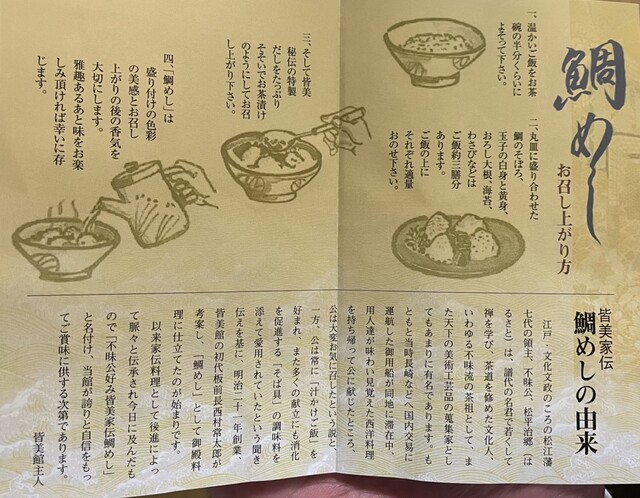 鯛めし
お召し上がり方
一、温かいご飯をお茶
碗の半分くらいに
よそって下さい。
二、丸皿に盛り合わせた
鯛のそぼろ、
玉子の白身と黄身、
おろし大根、海苔、
わさびなどは
ご飯約三膳分
あります。
ご飯の上に
それぞれ適量
おのせ下さい。
三、そして皆美
秘伝の特製
だしをたっぷり
そそいでお茶漬け
のようにしてお召
し上がり下さい。
四、「鯛めし」は
盛り付けの色彩
の美感とお召し
上がりの後の香気を
大切にします。
雅趣あるあと味をお楽
しみ頂ければ幸いに存
じます。
皆美家伝
鯛めしの由来
江戸・文化文政のころの松江藩
七代の領主、不昧公、松平治郷（は
るさと）は、譜代の名君で若くして
禅を学び、茶道を修めた文化人、
いわゆる不昧流の茶祖として、ま
た天下の美術工芸品の蒐集家とし
てもあまりに有名であります。も
ともと当時長崎など、国内交易に
運航した御用船が同地に滞在中、
用人達が味わい見覚えた西洋料理
を持ち帰って公に献じたところ、
公は大変お気に召したという説と、
一方、公は常に「汁かけご飯」を
好まれ、また多くの献立にも消化
を促進する「そば具」の調味料を
添えて愛用されていたという聞き
伝えを基に、明治二十一年創業、
皆美館の初代板前長西村常太郎が
考案し、「鯛めし」として御殿料
理に仕立てたのが始まりです。
以来家伝料理として後進によっ
て脈々と伝承され今日に及んだも
ので「不昧公好み皆美家伝鯛めし」
と名付け、当館が誇りと自信をもっ
てご賞味に供する次第であります。
皆美館主人